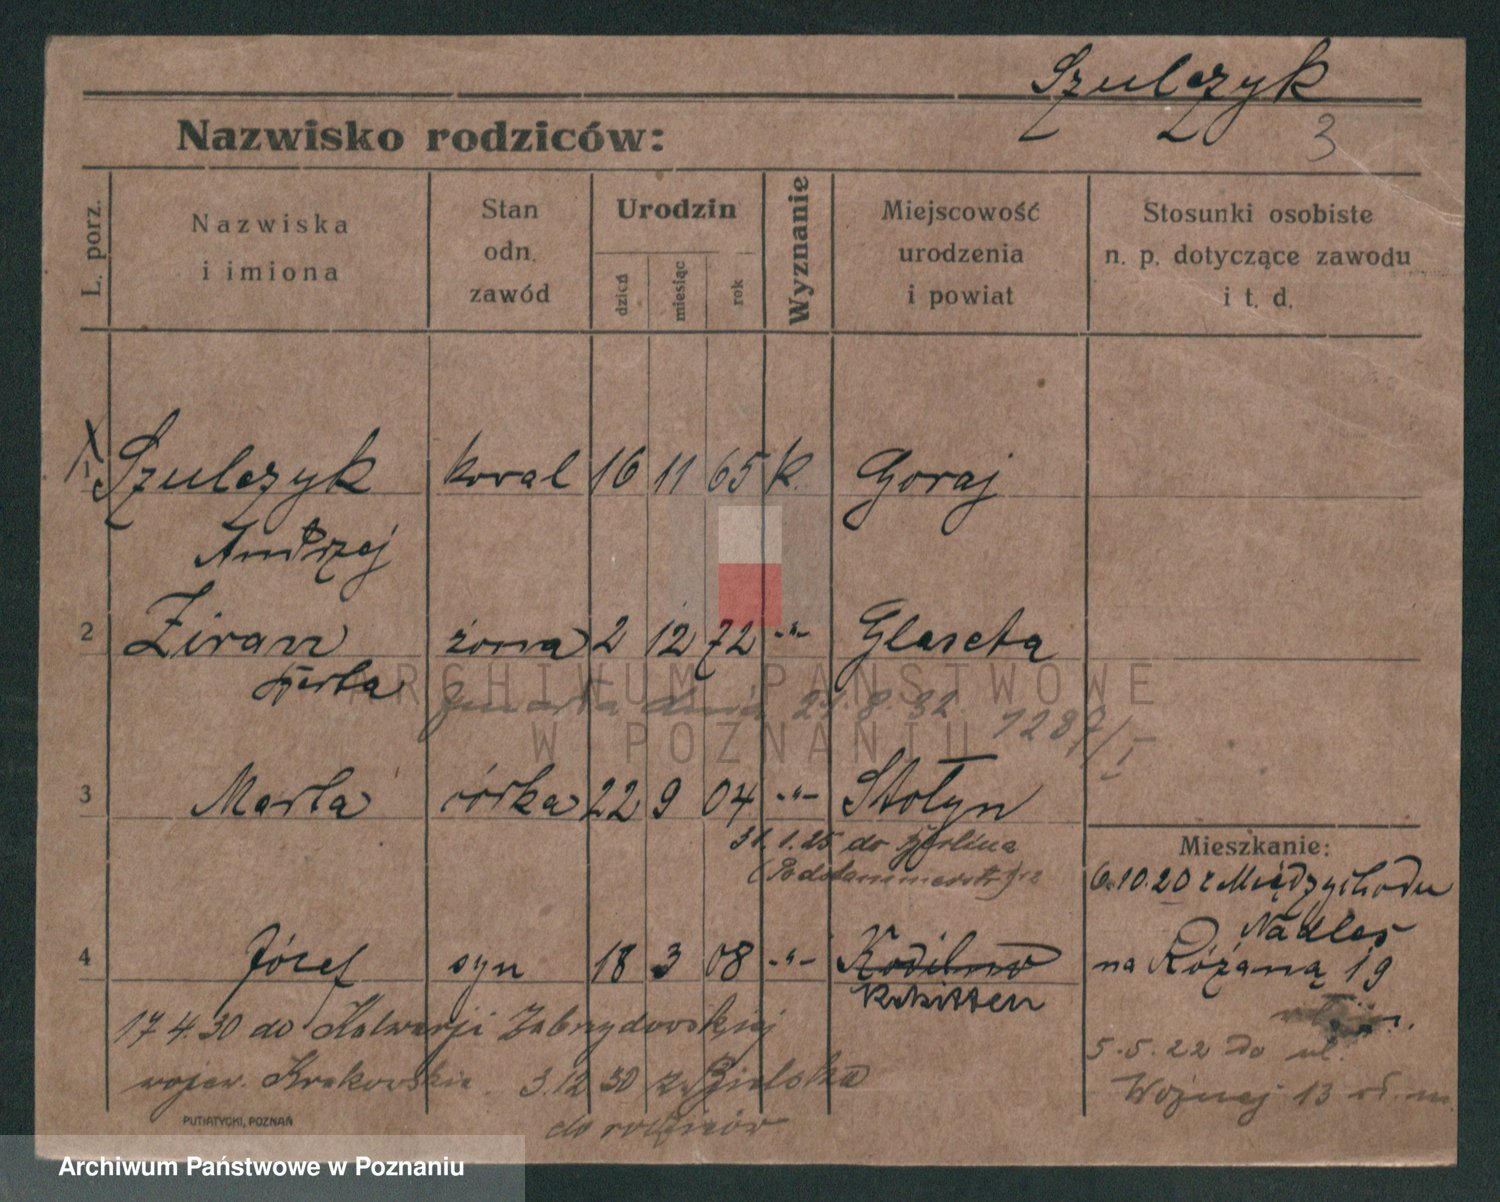 Szulczyk
3
Nazwisko rodziców:
L. porz.
Nazwiska
i imiona
Stan
odn.
zawód
Urodzin
dzień
miesiąc
rok
Wyznanie
Miejscowość
urodzenia
i powiat
Stosunki osobiste
n. p. dotyczące zawodu
i t. d.
1 Szulczyk kowal 16 11 65 k. Goraj
Andrzej
2 Ziran żona 2 12 72 -"-
Berta
Zmarła dnia 21.8.32 1287/I
3 Marta córka 22 9 04 -"- Stołyn
31.1.25 do Berlina
Mieszkanie:
6.10.20 z Międzychodu
Nadleś
na Różaną 19
4 Józef syn 18 3 08 -"-
Rokitten
17.4.30 do Kalwarji Zebrzydowskiej
wojew. Krakowskie 3.12.30 z Bielska
do rodziców
5.5.22 do ul.
13
PUTIATYCKI, POZNAŃ
ARCHIWUM PAŃSTWOWE
W POZNANIU
Archiwum Państwowe w Poznaniu